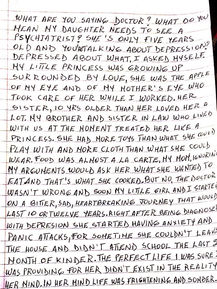 WHAT ARE YOU SAYING DOCTOR? WHAT DO YOU
MEAN MY DAUGHTER NEEDS TO SEE A
PSYCHIATRIST? SHE'S ONLY FIVE YEARS
OLD AND YOU TALKING ABOUT DEPRESSION?
DEPRESSED ABOUT WHAT, I ASKED MYSELF.
MY LITTLE PRINCESS WAS GROWING UP
SURROUNDED BY LOVE, SHE WAS THE APPLE
OF MY EYE AND OF MY MOTHER'S EYE WHO
TOOK CARE OF HER WHILE I WORKED, HER
SISTER, 10 YEARS OLDER THAN HER LOVED HER A
LOT. MY BROTHER AND SISTER IN LAW WHO LIVED
WITH US AT THE MOMENT TREATED HER LIKE A
PRINCESS. SHE HAD MORE TOYS THAN WHAT SHE COULD
PLAY WITH AND MORE CLOTH THAN WHAT SHE COULD
WEAR. FOOD WAS ALMOST A LA CARTE, MY MOM,
MY ARGUMENTS WOULD ASK HER WHAT SHE WANTED TO
EAT AND THAT'S WHAT SHE COOKED. BUT NO, THE DOCTOR
WASN'T WRONG AND SOON MY LITTLE GIRL AND I STARTED
ON A BITER, SAD, HEARTBREAKING JOURNEY THAT WOULD
LAST 10 OR TWELVE YEARS. RIGHT AFTER BEING DIAGNOSED
WITH DEPRESION SHE STARTED HAVING ANXIETY AND
PANIC ATTACKS, FOR SOMETIME SHE COULDN'T LEAVE
THE HOUSE AND DIDN'T ATTEND SCHOOL THE LAST
MONTH OF KINDER. THE PERFECT LIFE I WAS SURE I
WAS PROVIDING FOR HER DIDN'T EXIST IN THE REALITY
HER MIND. IN HER MIND LIFE WAS FRISHTENING AND SOMBER.